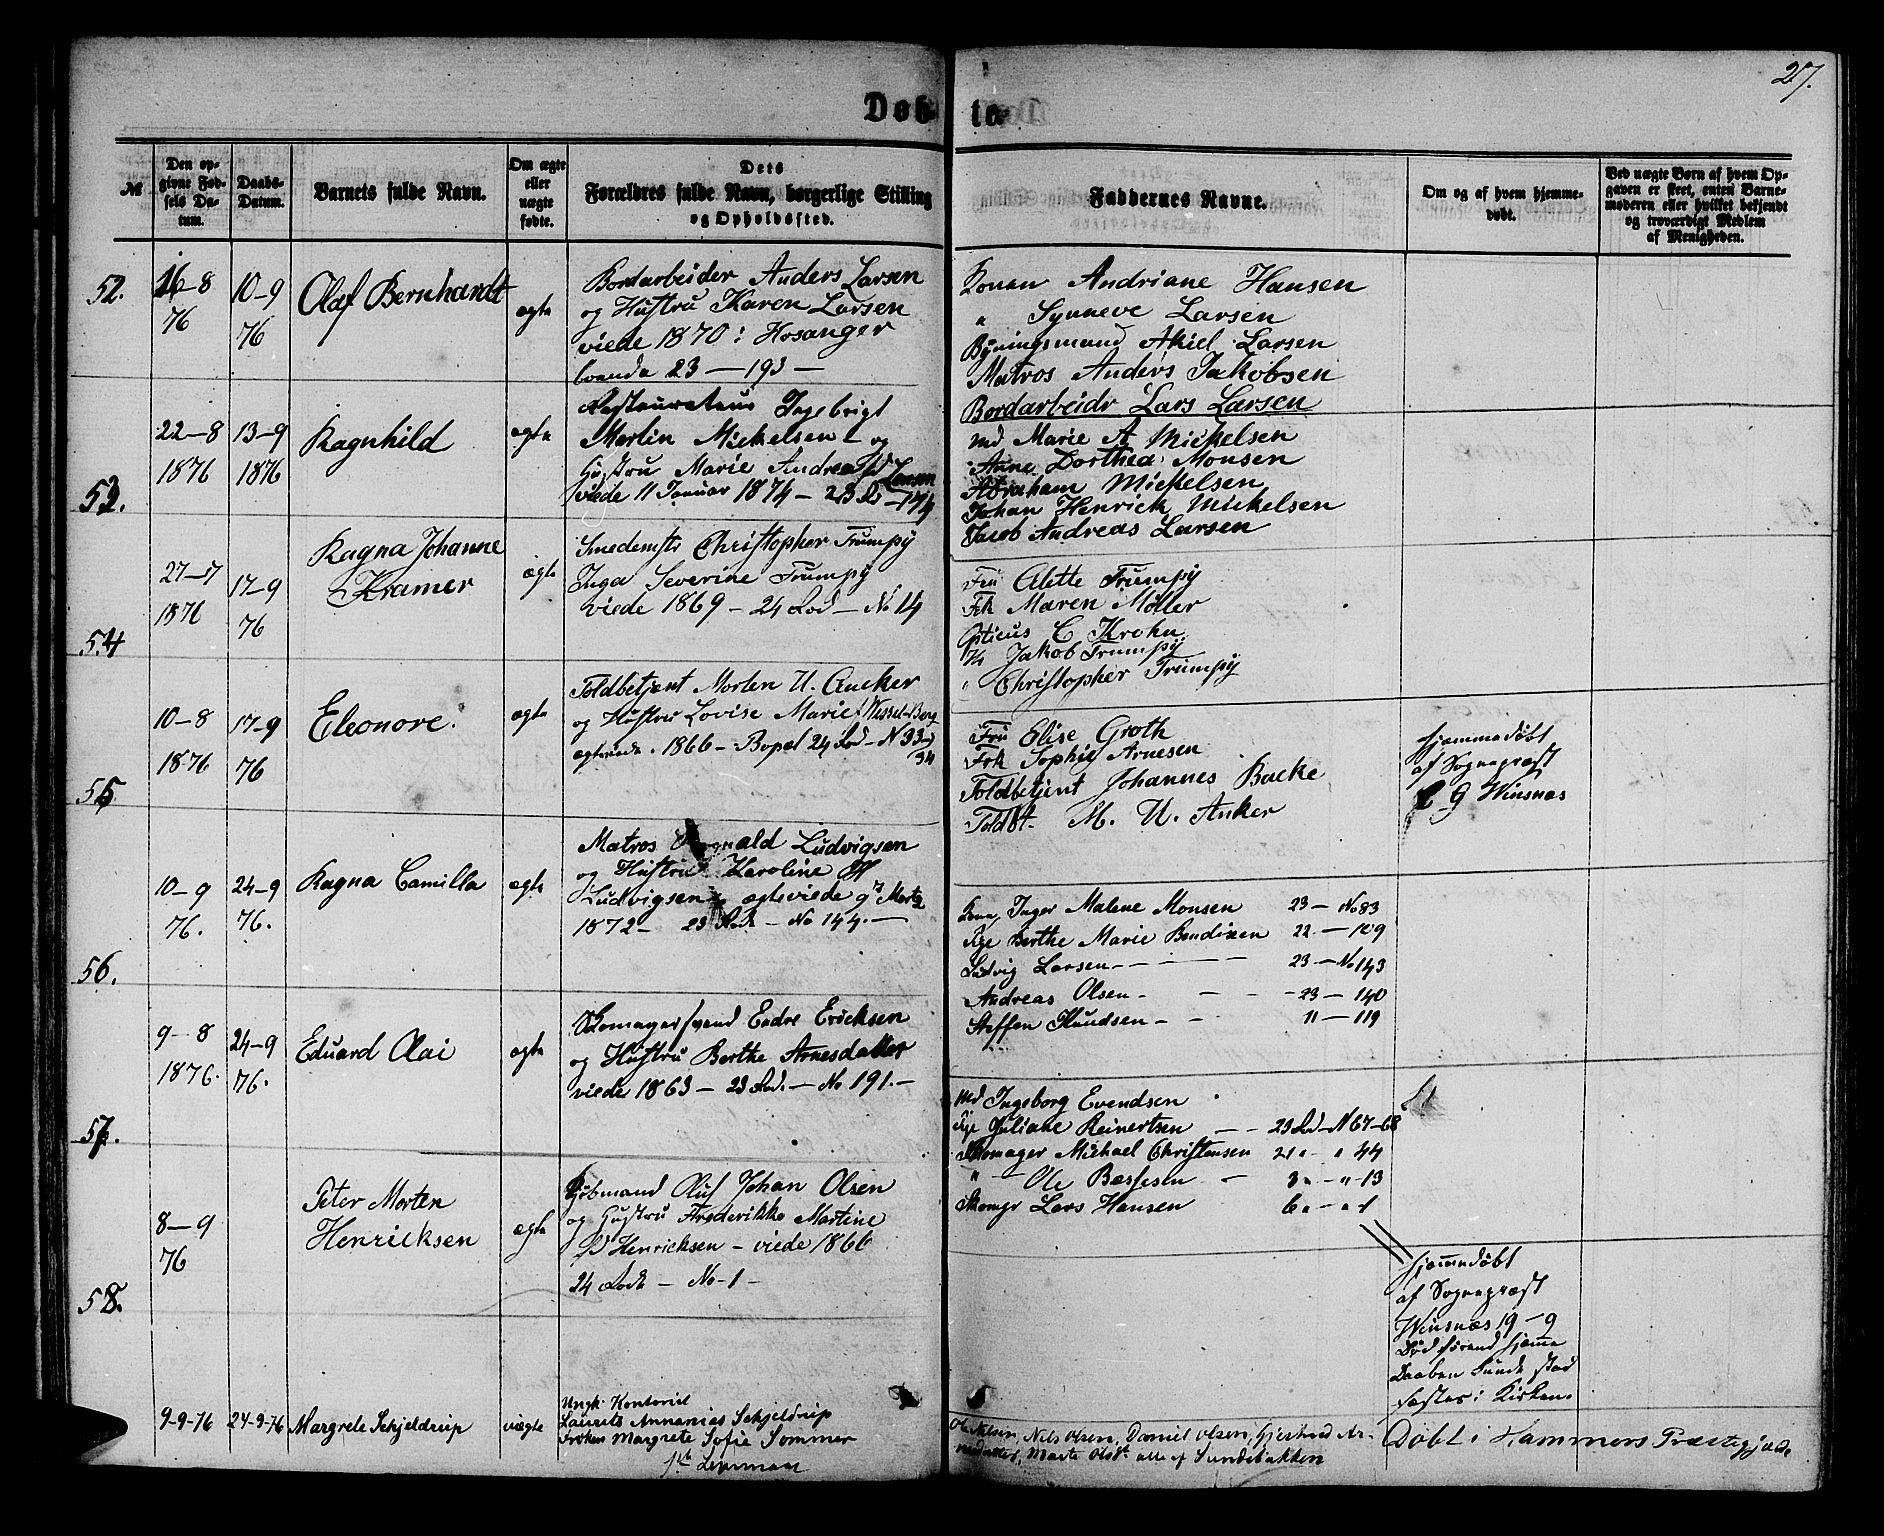 27.
Døb- te.
№
Den opgivne Fødsels Datum.
Daabs-Datum.
Barnets fulde Navn.
Om ægte eller uægte fødte.
Dets Forældres fulde Navn, borgerlige Stilling og Opholdssted.
Faddernes Navne.
Om og af hvem hjemmedøbt.
Ved uægte Børn af hvem Opgaven er skeet, enten Barnemoderen eller hvilket bekjendt og troværdigt Medlem af Menigheden.
52.
16–8
76
10–9
76
Olaf Bernhardt
ægte
Bordarbeider Anders Larsen
og Hustru Karen Larsen
viede 1870 i Hosanger
23 — 193 —
Konen Andriane Hansen
" Synneve Larsen
Bÿningsmand Akiel Larsen
Matros Anders Jakobsen
Bordarbeidr Lars Larsen
53.
22–8
1876
13–9
1876
Ragnhild
ægte
Restaurateur Ingebrigt
Martin Mickelsen og
Hustru Marie Andrea fd Larsen
viede 11 Januar 1874 – 23 R – 174
Md Marie A Mickelsen
Anne Dorthea Monsen
Abraham Mickelsen
Johan Henrick Mickelsen
Jacob Andreas Larsen
54
27–7
1876
17–9
76
Ragna Johanne
Kramer
ægte
Smedemstr Christopher Trumpÿ
Inga Severine Trumpÿ
viede 1869 – 24 Rod – No 14
Fru Alette Trumpÿ
Frk Maren Møller
Opticus C Krohn
Hr Jakob Trumpÿ
" Christopher Trumpÿ
55
10–8
1876
17–9
76
Eleonore.
ægte
Toldbetjent Morten U. Ancker
og Hustru Lovise Marie f Wessel-Berg
ægteviede 1866 – Bopæl 24 Rod – N 33–
34
Fru Elise Groth
Frk Sophie Arnesen
Toldbetjent Johannes Backe
Toldbt. M. U. Anker
hjemmedøbt
af Sognepræst
G Winsnæs
56.
10–9
76.
24–9
76.
Ragna Camilla
ægte
Matros Ludvigsen
og Hustru Karoline
Ludvigsen ægteviede Marts
1872 – 23 Rode – No 144. —
Kone Inger Malene Monsen 23 – No 83
Pige Berthe Marie Bendixen 22 – 109
Ludvig Larsen – – – 23 – No 143
Andreas Olsen – – – 23 – 140
Steffen Knudsen – – " – 119
57.
9–8
1876.
24–9
76.
Eduard Olai
ægte
Skomagersvend Endre Ericksen
og Hustru Berthe Arnesdatter
viede 1863 – 23 Rod. – No 191. –
Md Ingeborg Evendsen
Pige Juliane Reinertsen – – 23 Rod – N 67–68
Skomager Michael Christensen 21 " – " 44
" – Ole Bessesen – 3 " – " 13
Skomgr Lars Hansen 6 " – " 1
58.
8–9
76
Peter Morten
Henricksen
ægte
Kjøbmand Oluf Johan Olsen
og Hustru Frederikke Martine
fd Henricksen – viede 1866
24 Rode – No 1 –
hjemmedøbt
af Sognepræst
Winsnæs 19–9
Død forend hjemme
Daaben kunde stad
fæstes i Kirken.
9-9-76
24-9-76
Margrete Schjeldrup
uægte
Ungk. Kontorist
Laurits Annanias Schjeldrup
Frøken Margrete Sofie Sommer
Ole Nilsen, Nils Olsen, Daniel Olsen, Gjertrud Ar-
nedatter, Marte Olsdt. alle af Sundsbakken
Døbt i Hammers Præstegjæld